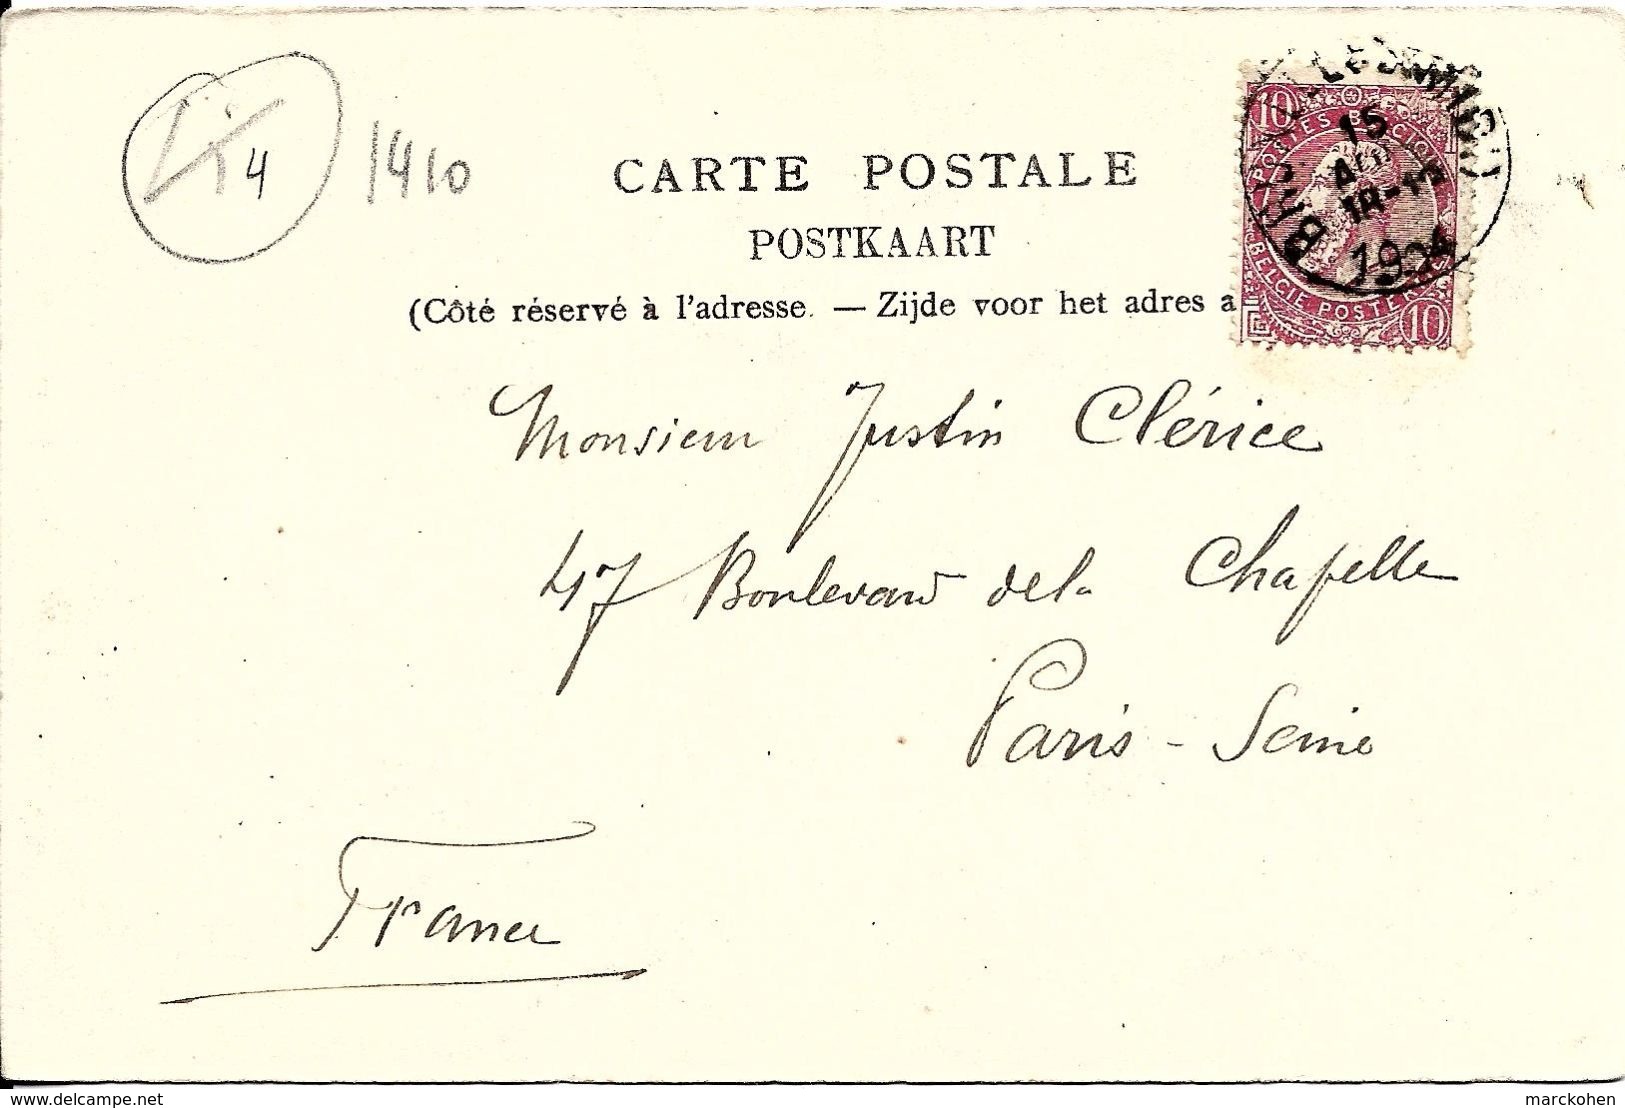 4
1410
CARTE POSTALE
POSTKAART
(Côté réservé à l'adresse. — Zijde voor het adres a
10
POSTES BELGIQUE
15
18-19
1904
BELGIE POSTERIJEN
10
Monsieur Justin Clérice
47 Boulevard de la Chapelle
Paris - Seine
France
www.delcampe.net
marckohen